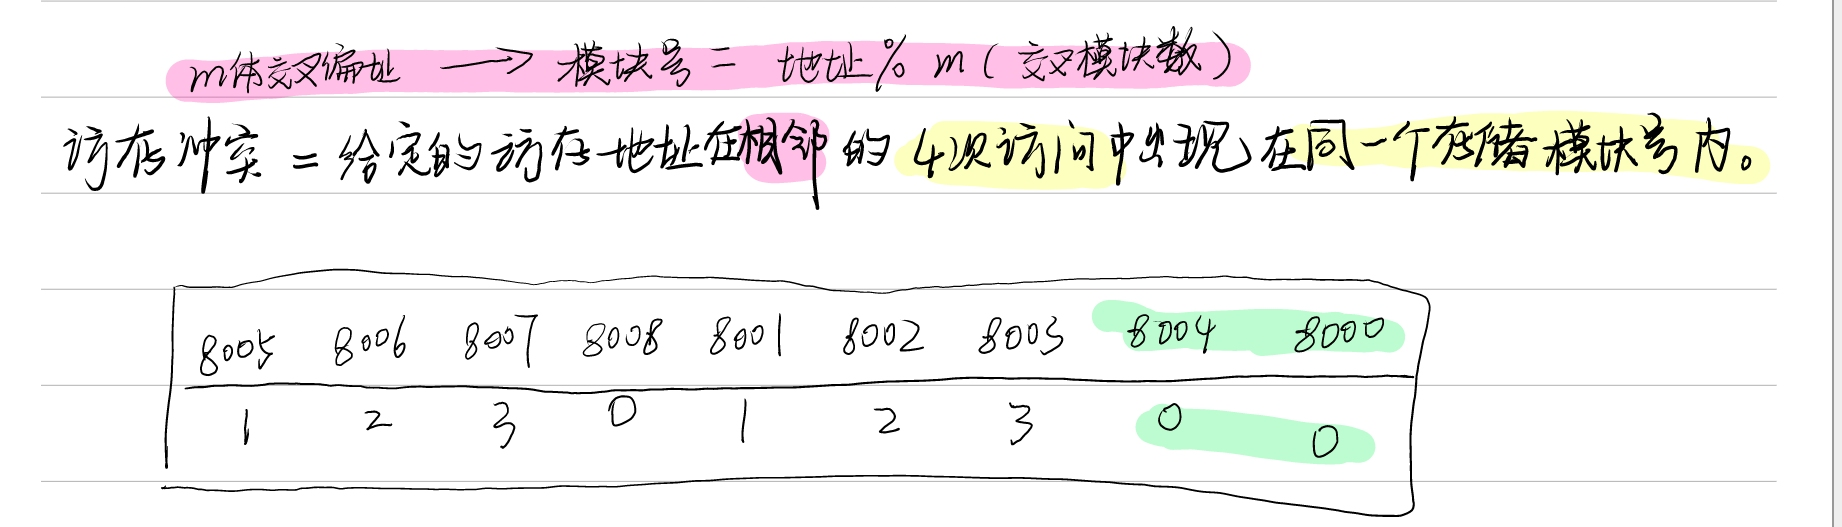 m体交叉编址 → 模块号 = 地址 % m (交叉模块数)
访存冲突 = 给定的访存地址在相邻的4次访问中出现在同一个存储模块号内。
8005 8006 8007 8008 8001 8002 8003 8004 8000
1 2 3 0 1 2 3 0 0